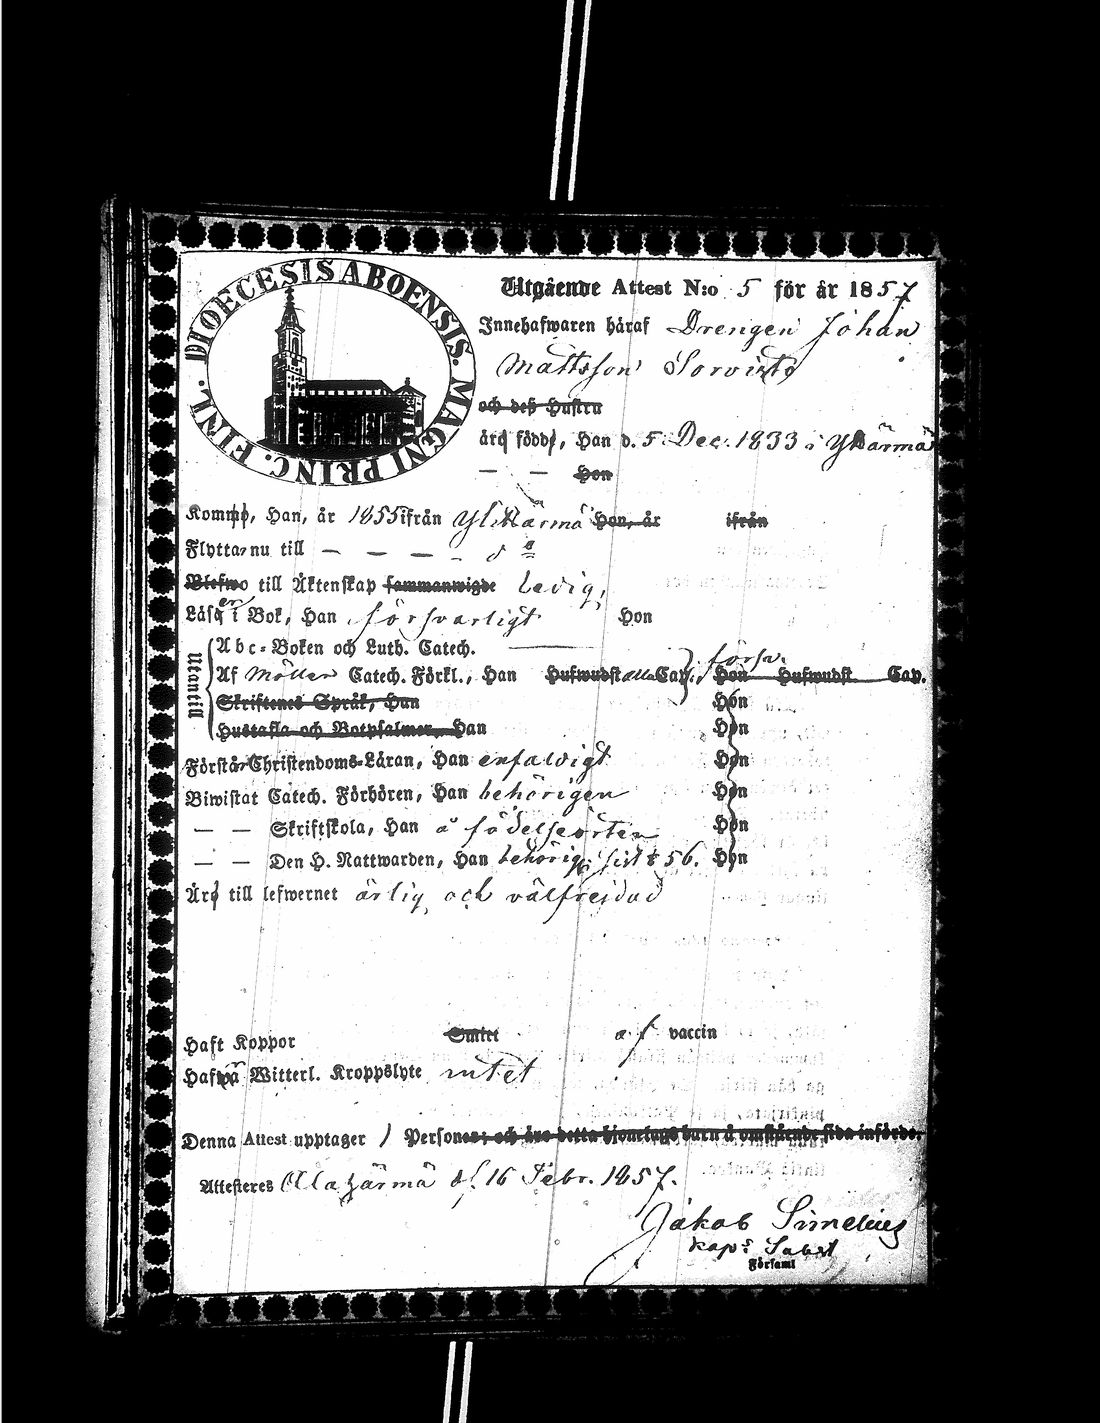 DIOECESIS ABOENSIS. MAGNI PRINC. FINL.
Utgående Attest N:o 5 för år 1857
Innehafwaren häraf Drengen Johan
Mattsson Sorvisto
och deß Hustru
äro född, Han d. 5 Dec. 1833 i Ylihärmä
— — Hon
Kommo, Han, år 1855 ifrån Ylihärmä Hon, år ifrån
Flytta nu till — — — — d o
Blefwo till Äktenskap sammanwigde ledig,
Läser i Bok, Han försvarligt Hon
Utantill
Abc-Boken och Luth. Catech.
Af Möller Catech. Förkl., Han Hufwudst alla Cap., försv. Hon Hufwudst Cap.
Skriftenes Språk, Han Hon
Hustafla och Botpsalmer, Han Hon
Förstå Christendoms-Läran, Han enfaldigt Hon
Biwistat Catech. Förhören, Han behörigen Hon
— — Skriftskola, Han å födelseorten Hon
— — Den H. Nattwarden, Han behörig. sist 56. Hon
Äro till lefwernet ärlig och välfrejdad
Haft Koppor Smitt af vaccin
Hafwa Witterl. Kroppslyte intet
Denna Attest upptager 1 Personer; och äro detta hjonelags barn å omstående sida införde.
Attesteres Alahärmä d. 16 Febr. 1857.
Jakob Simelius
kap: Subst
Församl